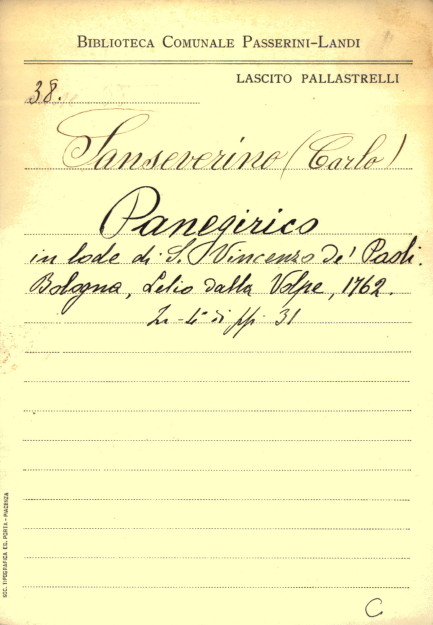 BIBLIOTECA COMUNALE PASSERINI-LANDI
LASCITO PALLASTRELLI
38.
Sanseverino (Carlo)
Panegirico
in lode di S. Vincenzo de' Paoli.
Bologna, Lelio dalla Volpe, 1762.
In-4° di pp. 31
SOC. TIPOGRAFICA ED. PORTA - PIACENZA
C